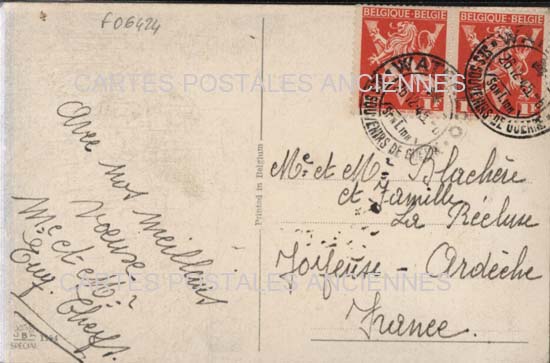 F06424
BELGIQUE-BELGIE
BELGIQUE-BELGIE
SOUVENIRS DE GUERRE
CARTES POSTALES ANCIENNES
Avec nos meilleurs
voeux
Mr et Me
Guy.
Printed in Belgium
Me et Mr Blachère
et Famille
La Récluse
Joyeuse - Ardèche
France.
CARTES POSTALES ANCIENNES
B
SPECIAL